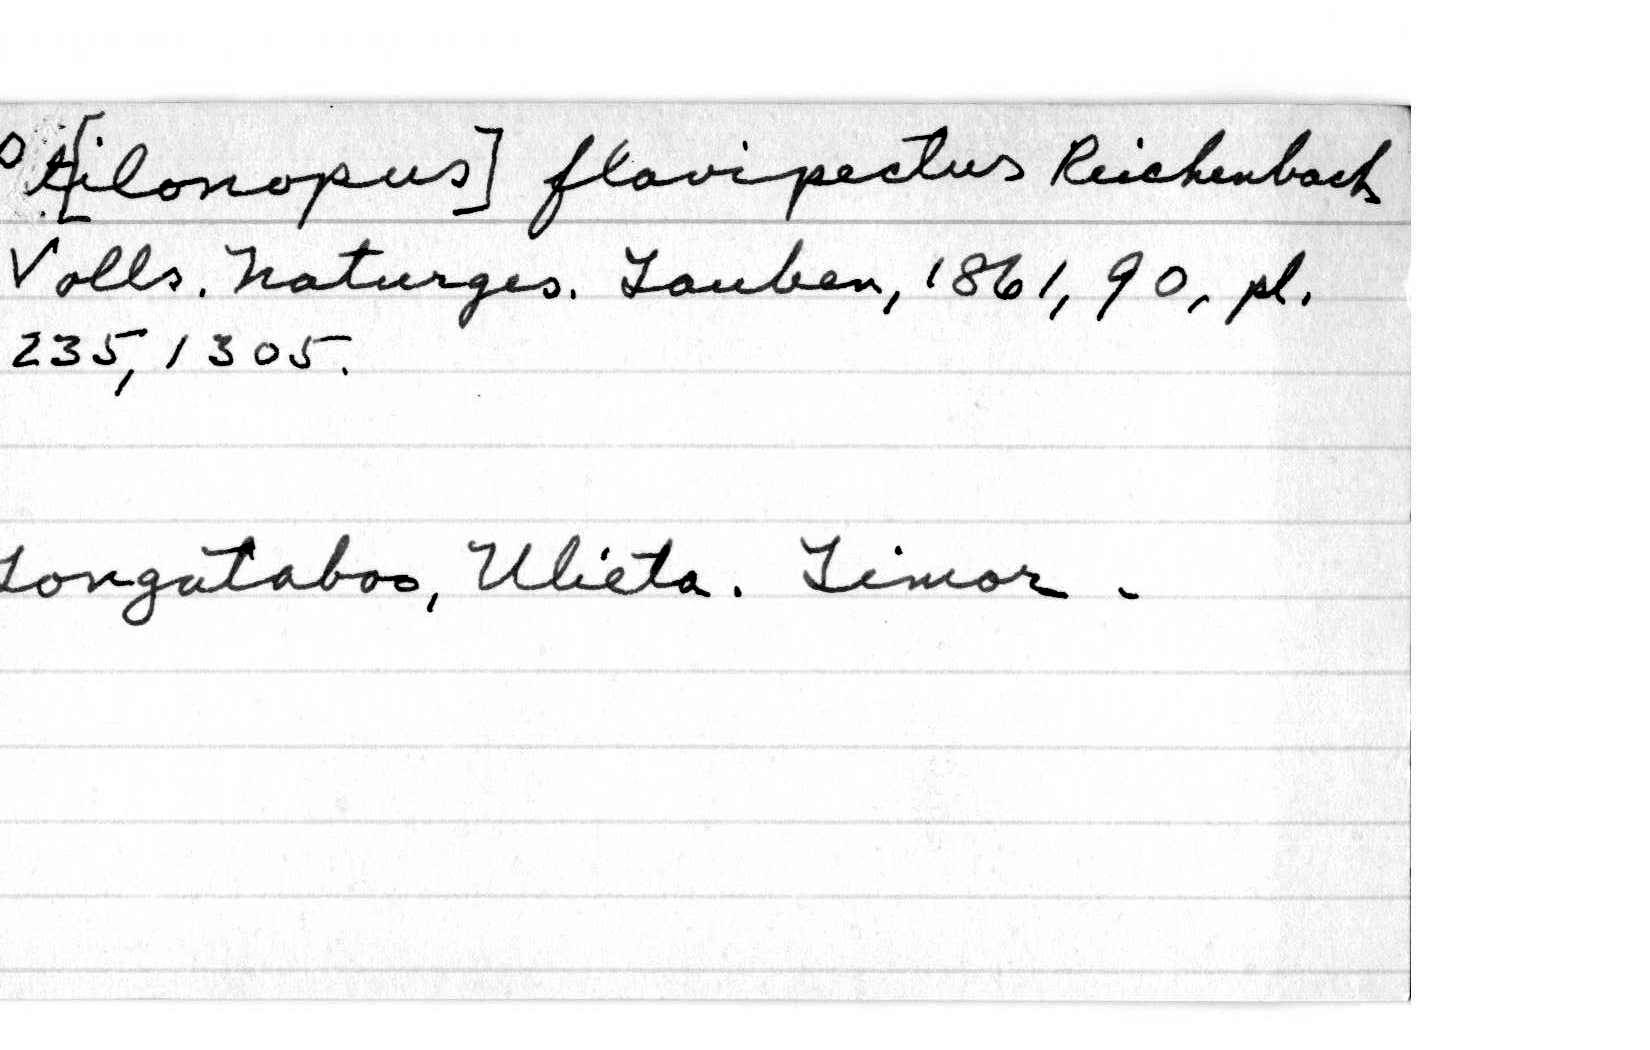 ot[ilonopus] flavipectus Reichenbach
Volls. Naturges. Tauben, 1861, 90, pl.
235, 1305.
Tongataboo, Ulieta. Timor.